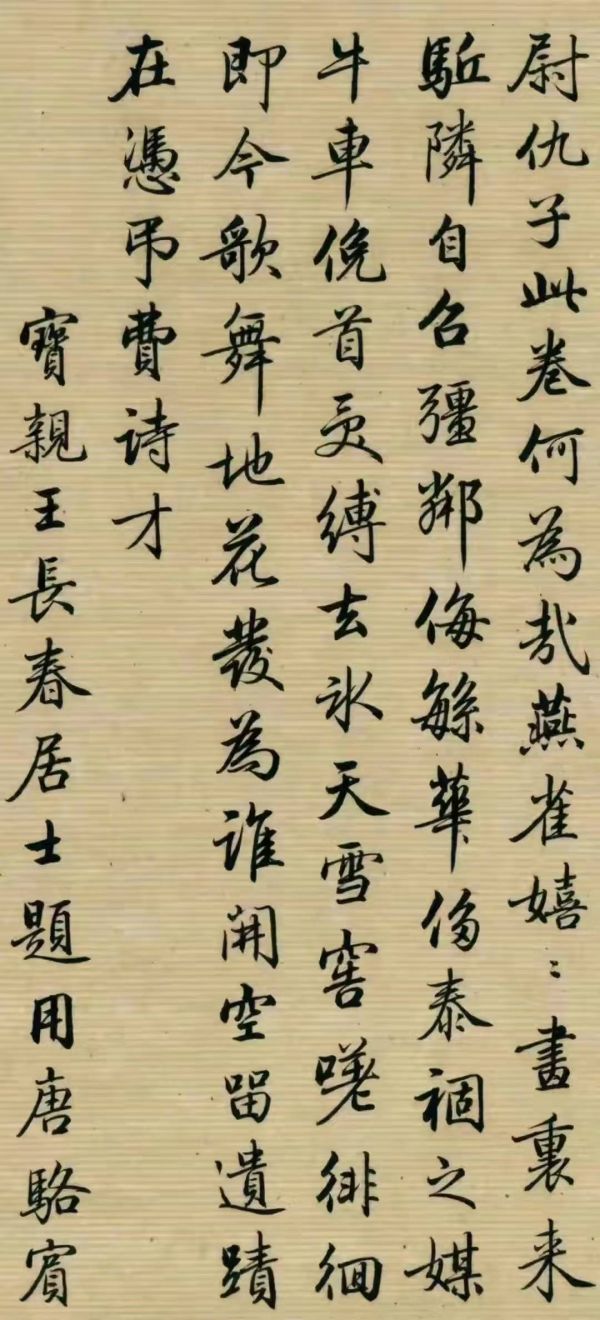 尉仇子此卷何為哉燕雀嬉〻畫裏来
駈隣自召彊鄰侮緐華侈泰禍之媒
牛車俛首受縛去氷天雪窖嘆徘徊
即今歌舞地花發為誰開空留遺蹟
在憑弔費詩才
寶親王長春居士題用唐駱賓